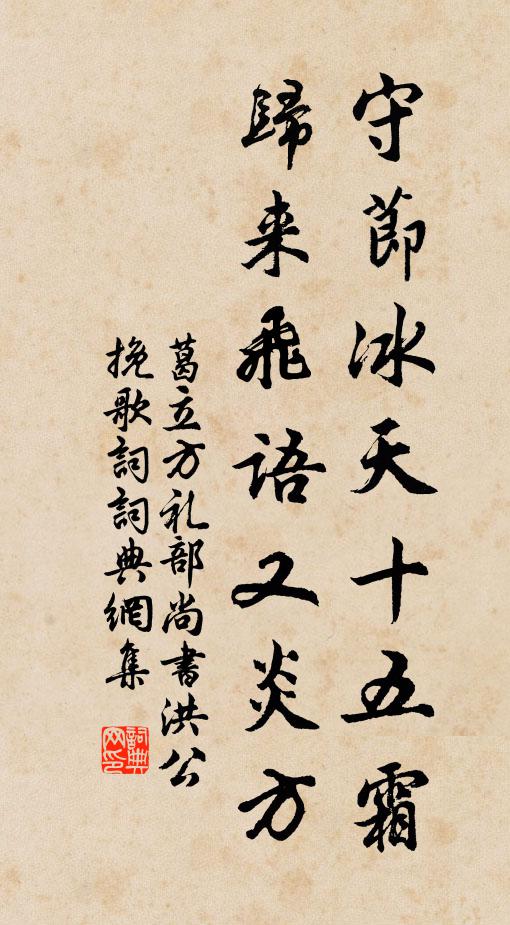 守節冰天十五霜
歸来飛語又炎方
葛立方礼部尚書洪公
挽歌詞詞典網集
詞典网印